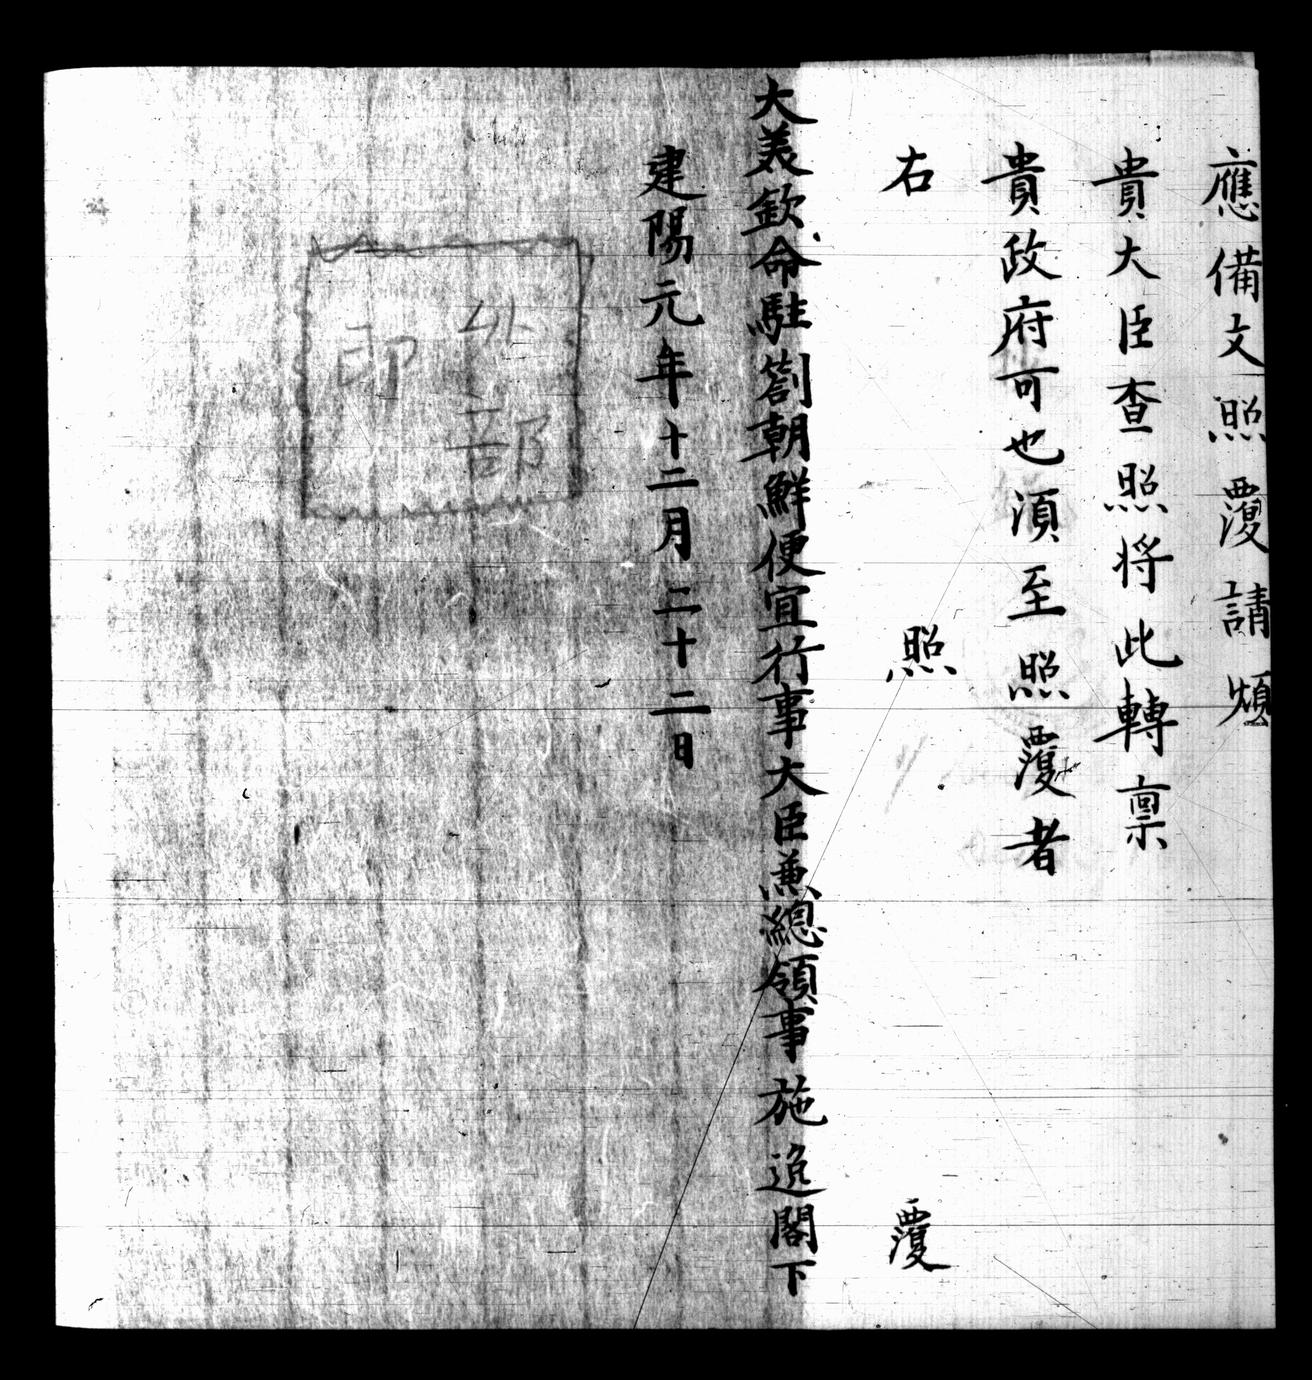 應備文照覆請煩
貴大臣查照將此轉稟
貴政府可也須至照覆者
右照覆
大美欽命駐劄朝鮮便宜行事大臣兼總領事施逸閣下
建陽元年十二月二十二日
外部
印